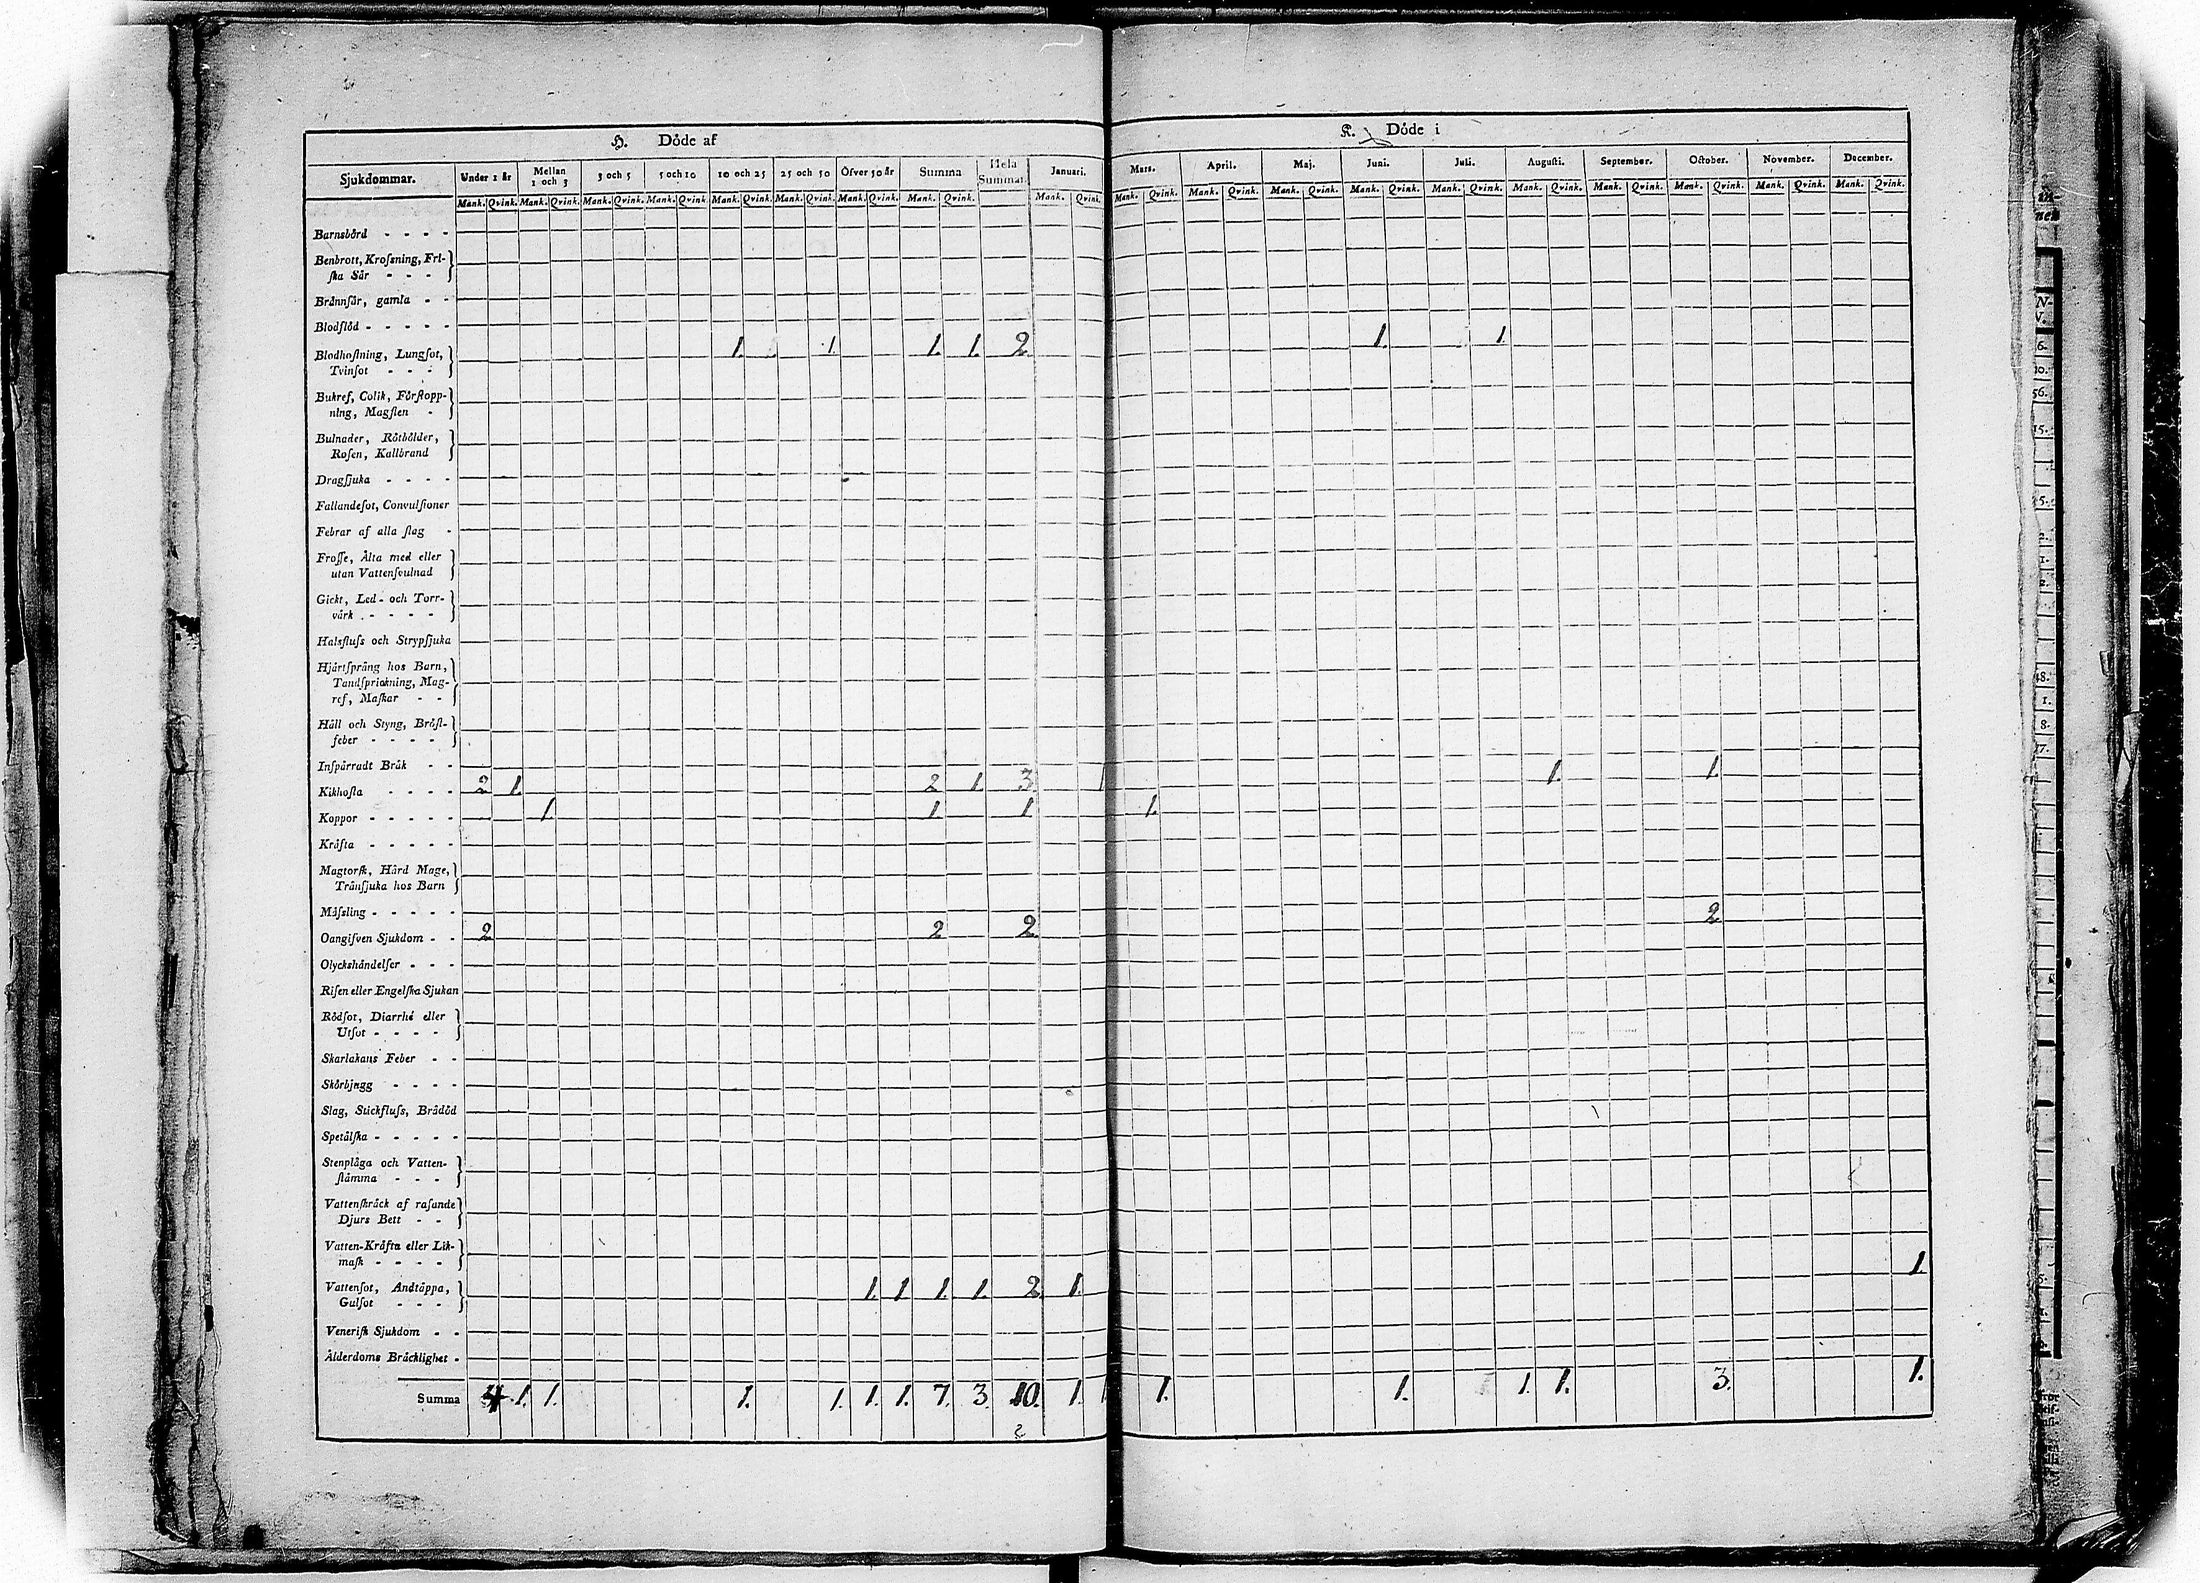 H. Döde af
K. Döde i
Sjukdommar. Under 1 år Mellan 1 och 3 3 och 5 5 och 10 10 och 25 25 och 50 Öfver 50 år Summa Hela Summan. Januari. Mars. April. Maj. Juni. Juli. Augusti. September. October. November. December.
Mank. Qvink. Mank. Qvink. Mank. Qvink. Mank. Qvink. Mank. Qvink. Mank. Qvink. Mank. Qvink. Mank. Qvink. Mank. Qvink. Mank. Qvink. Mank. Qvink. Mank. Qvink. Mank. Qvink. Mank. Qvink. Mank. Qvink. Mank. Qvink. Mank. Qvink. Mank. Qvink. Mank. Qvink.
Barnsbörd - - - -
Benbrott, Krosſning, Fri-
ſka Sår - - -
Brännſår, gamla - -
Blodflöd - - - - -
Blodhoſtning, Lungſot, 1. 1. 1. 1. 2 1. 1.
Tvinſot - - -
Bukref, Colik, Förſtopp-
ning, Magſten -
Bulnader, Rötbölder,
Roſen, Kallbrand
Dragſjuka - - - -
Fallandeſot, Convulſioner
Febrar af alla ſlag -
Froſſe, Älta med eller
utan Vattenſvulnad
Gickt, Led- och Torr-
värk - - - -
Halsfluſs och Strypſjuka
Hjärtſprång hos Barn,
Tandſprickning, Mag-
ref, Maſkar - -
Håll och Styng, Bröſt-
feber - - - -
Inſpärradt Bråk - -
Kikhoſta - - - - 2 1. 2 1. 3. 1 1. 1.
Koppor - - - - - 1 1. 1 1.
Kräfta - - - - -
Magtorſk, Hård Mage,
Trånſjuka hos Barn
Mäſsling - - - - -
Oangifven Sjukdom - - 2 2 2. 2
Olyckshändelſer - - -
Riſen eller Engelſka Sjukan
Rödſot, Diarrhé eller
Utſot - - - -
Skarlakans Feber - -
Skörbjugg - - - -
Slag, Stickfluſs, Brådöd
Spetälſka - - - - -
Stenplåga och Vatten-
ſtämma - - -
Vattenſkräck af raſande
Djurs Bett - -
Vatten-Kräfta eller Lik-
maſk - - - -
Vattenſot, Andtäppa, 1. 1 1. 1. 2. 1. 1.
Gulſot - - -
Veneriſk Sjukdom - -
Ålderdoms Bräcklighet -
Summa 4 1. 1. 1. 1. 1. 1. 7. 3. 10. 1. 1 1. 1. 1. 1. 3. 1.